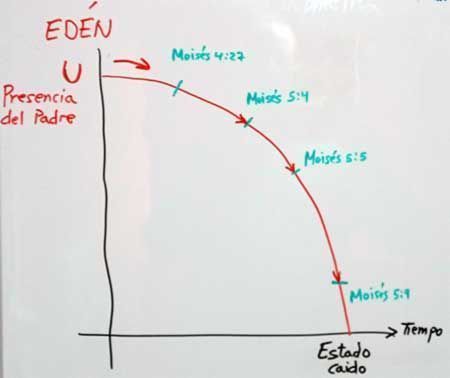 EDÉN
U
Presencia
del Padre
Moisés 4:27
Moisés 5:4
Moisés 5:5
Moisés 5:9
Tiempo
Estado
caido